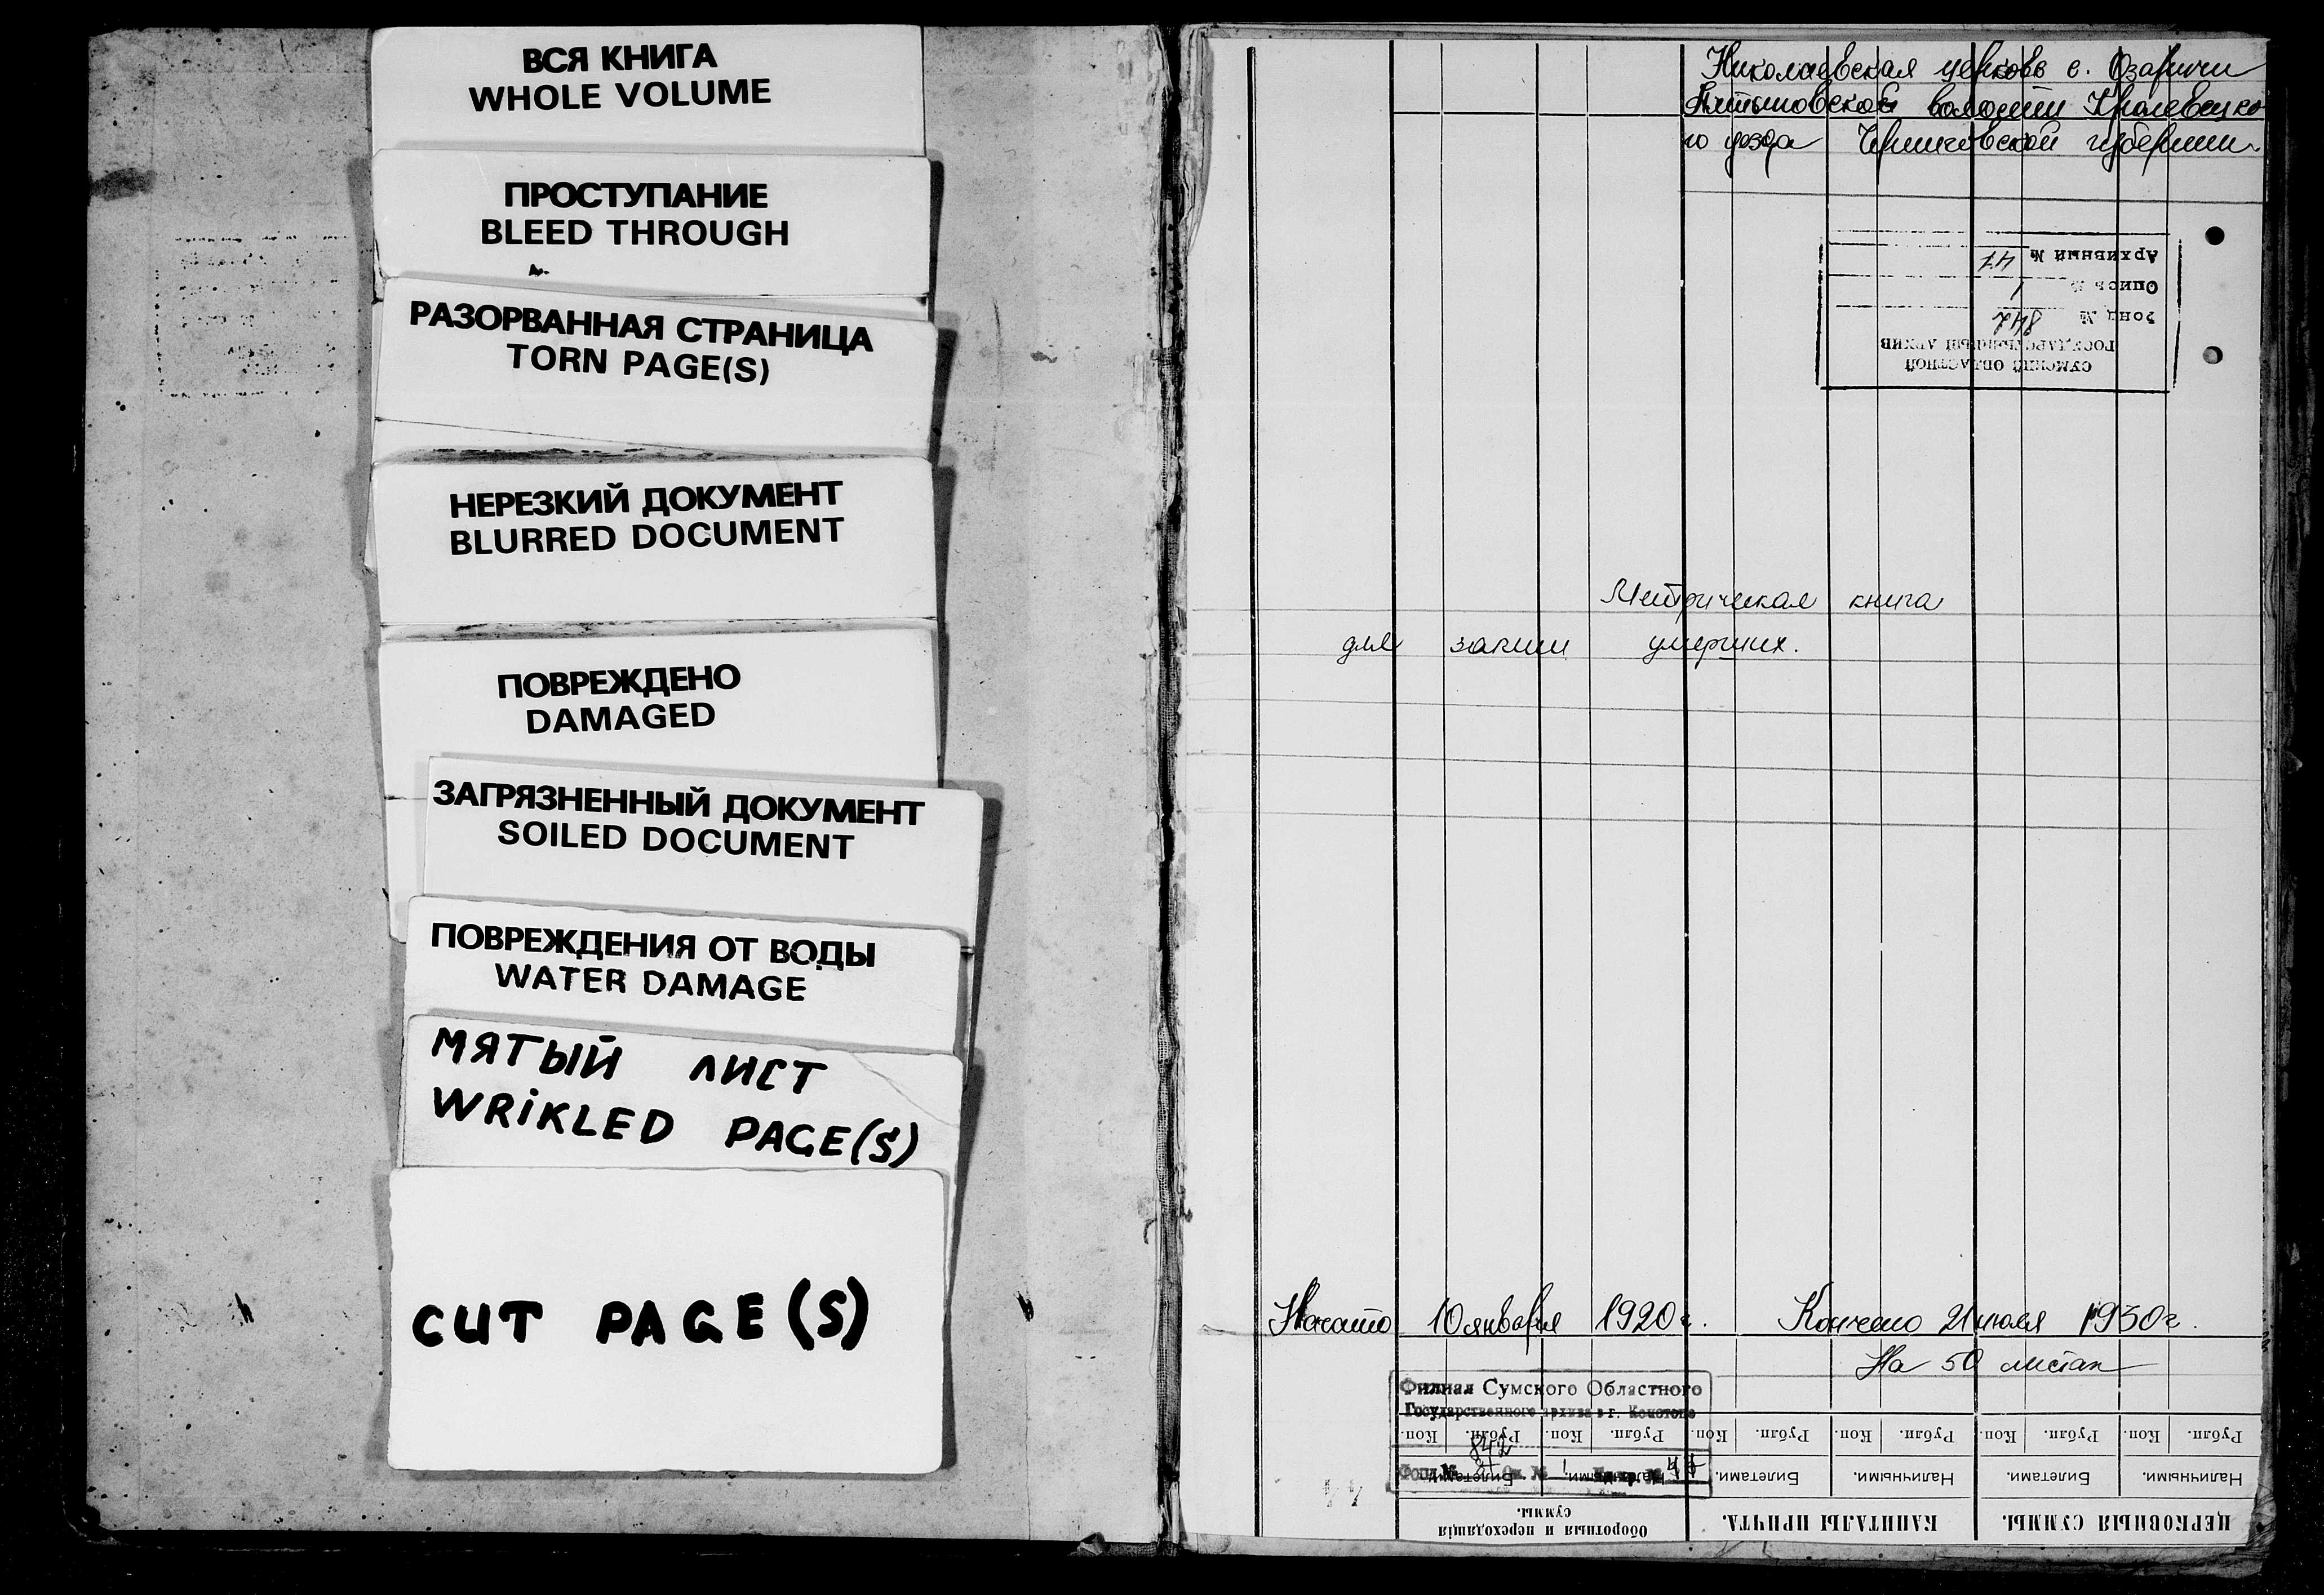 ВСЯ КНИГА
WHOLE VOLUME
ПРОСТУПАНИЕ
BLEED THROUGH
РАЗОРВАННАЯ СТРАНИЦА
TORN PAGE(S)
НЕРЕЗКИЙ ДОКУМЕНТ
BLURRED DOCUMENT
ПОВРЕЖДЕНО
DAMAGED
ЗАГРЯЗНЕННЫЙ ДОКУМЕНТ
SOILED DOCUMENT
ПОВРЕЖДЕНИЯ ОТ ВОДЫ
WATER DAMAGE
МЯТЫЙ ЛИСТ
WRIKLED PAGE(S)
CUT PAGE(S)
Николаевская церковь с. Озаричи
волости Кролевецко
го уезда Черниговской губернии.
СУМСКИЙ ОБЛАСТНОЙ
ГОСУДАРСТВЕННЫЙ АРХИВ
Фонд № 842
Опись № 1
Архивный № 47
Метрическая книга
для записи умерших.
Начато 10 января 1920 г. Кончено 21 июля 1930 г.
На 50 листах
Филиал Сумского Областного
Государственного архива в г. Конотопе
Фонд № 842 Оп. № 1
ЦЕРКОВНЫЯ СУММЫ. КАПИТАЛЫ ПРИЧТА. Оборотныя и переходящія суммы.
Наличными. Билетами. Наличными. Билетами. Наличными. Билетами.
Рубли. Коп. Рубли. Коп. Рубли. Коп. Рубли. Коп. Рубли. Коп. Рубли. Коп.